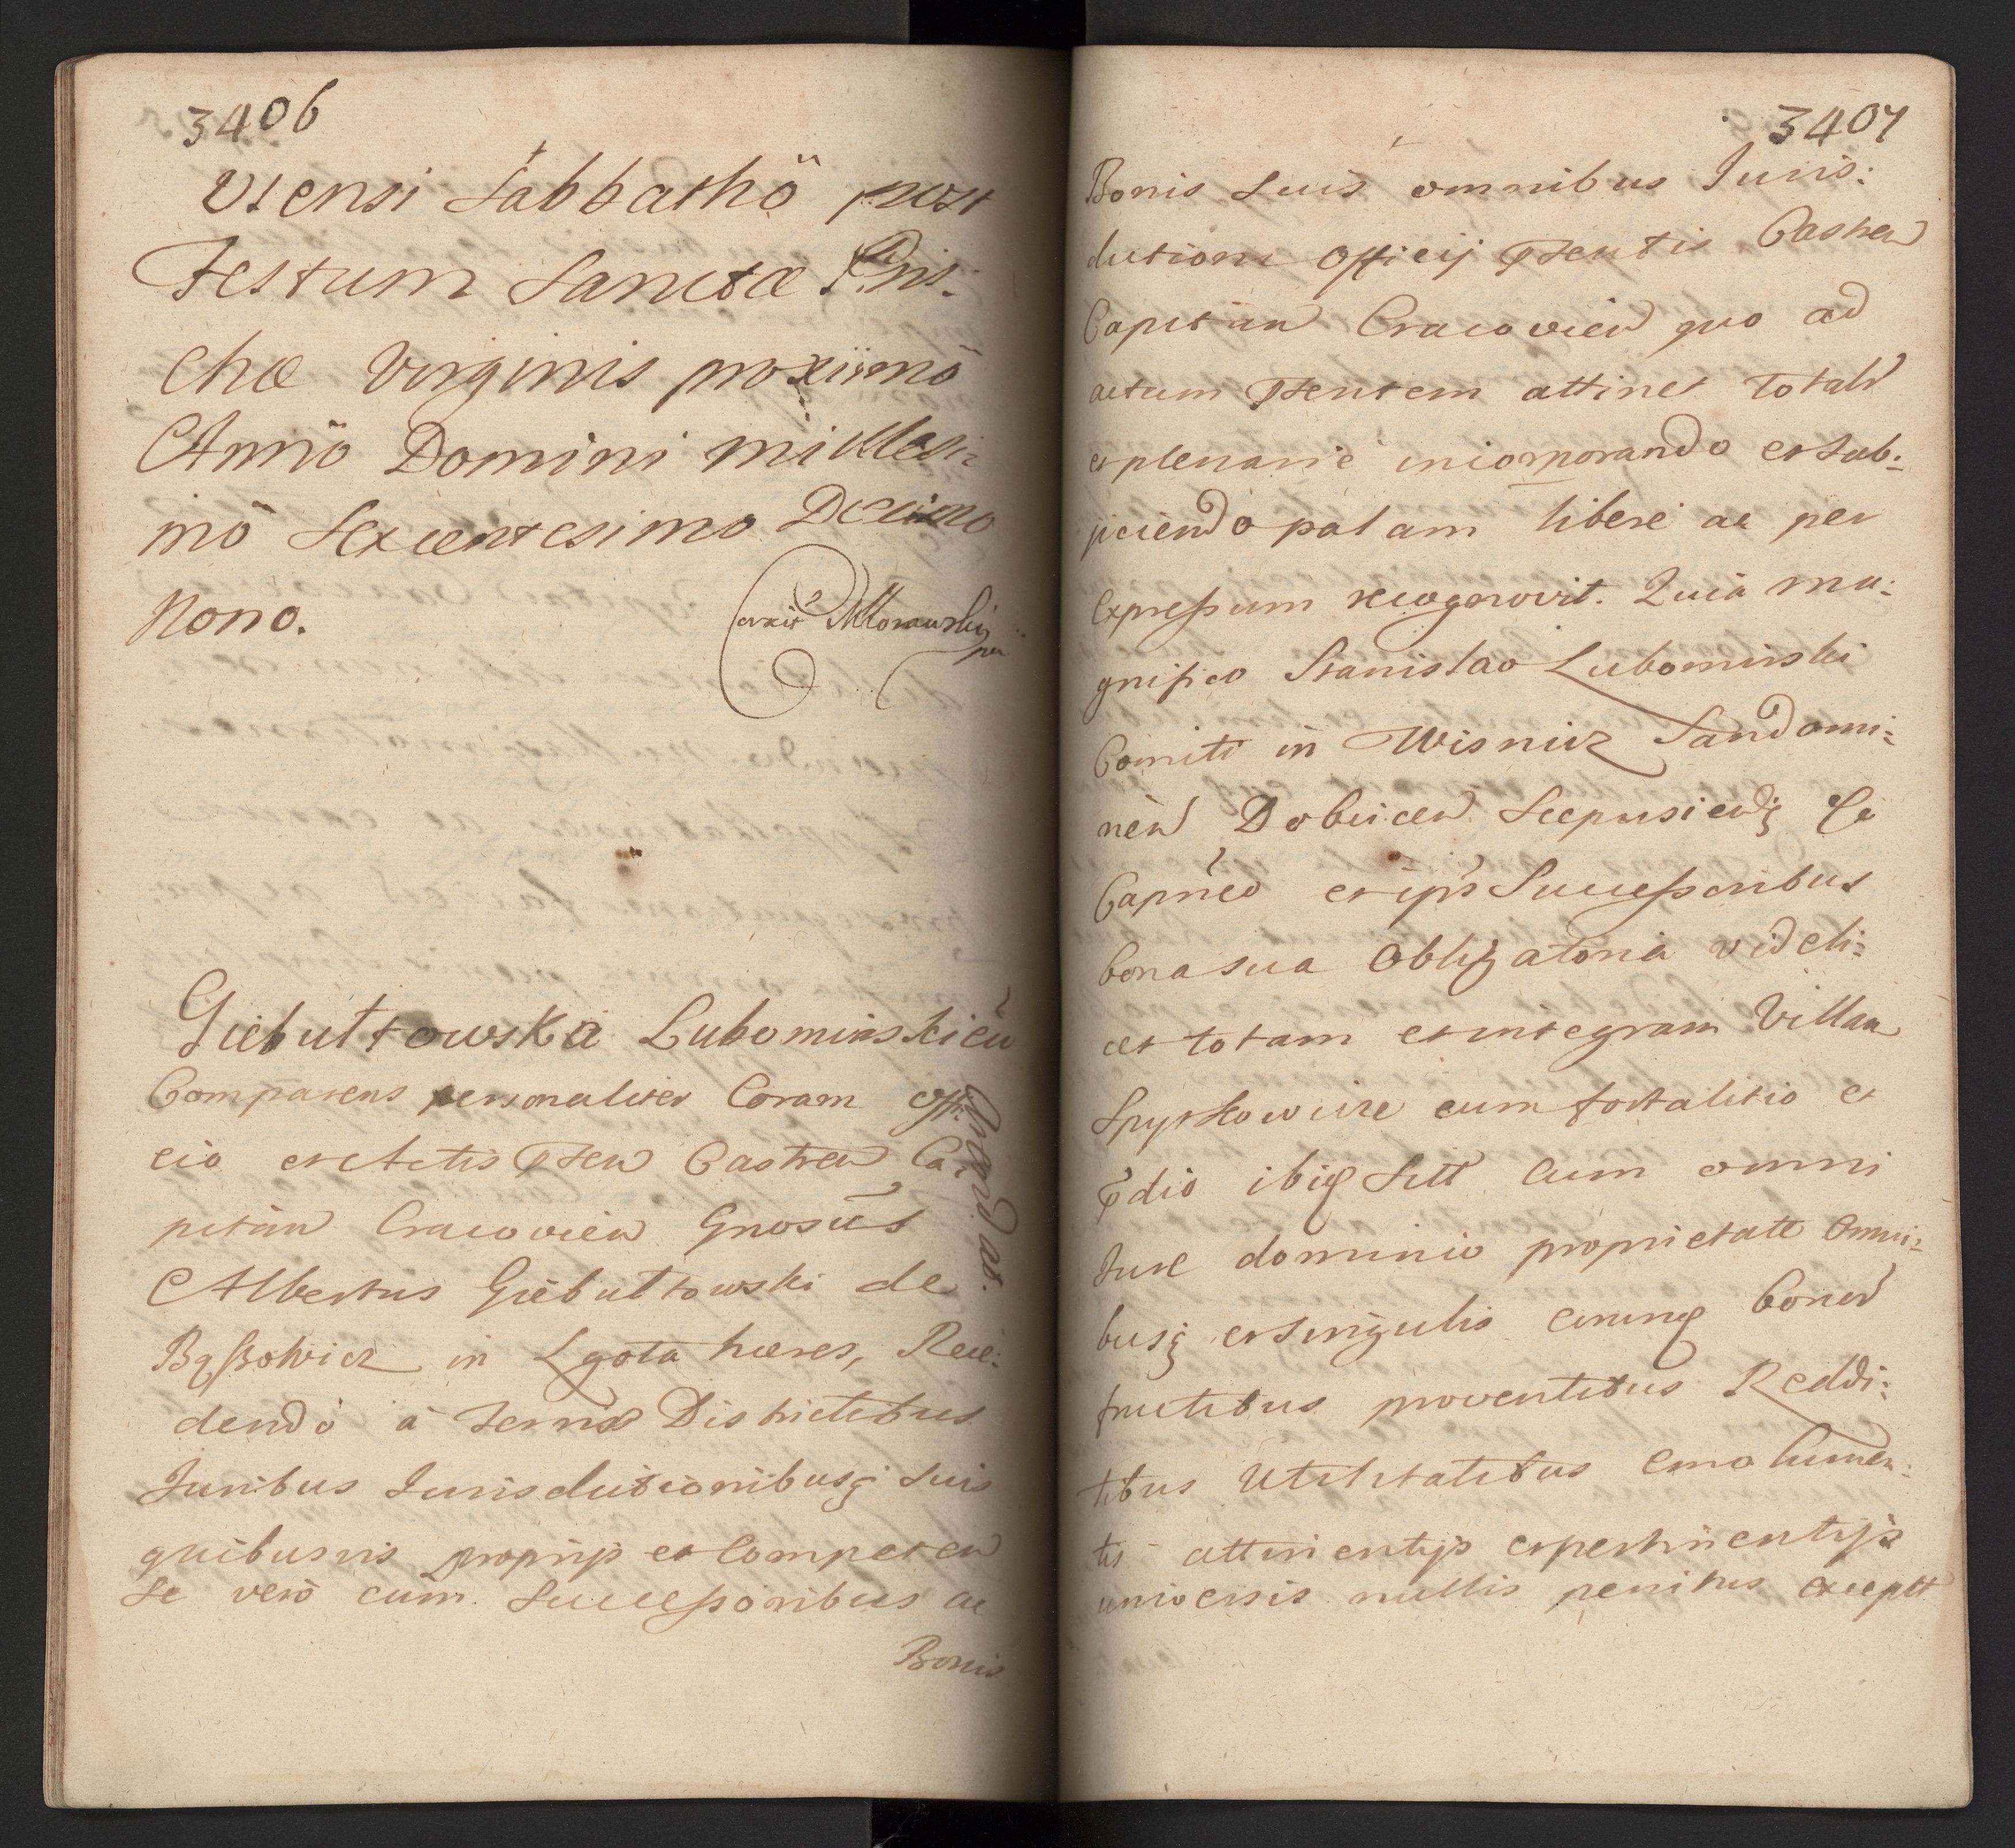 3406
viensi Sabbathô post
Festum Sanctæ Pris:
chæ Virginis proximô
Annô Domini millesi:
mô Sexcentesimo Decimo
Nono.
Morawski
Giebułtowska Lubomirskieu
Comparens personaliter Coram offi:
cio et Actis Pñten Castren Ca:
pitan Cracovien Gnosus
Albertus Giebułtowski de
in Lgota hæres, Rece:
dendo à terris Districtibus
Juribus Jurisdictionibusq suis
quibusvis proprijs et Competen
Se verò cum Successoribus ac
Bonis
3407
Bonis suis omnibus Juris:
dictioni Officij Pñtis Castren
Capitan Cracovien quo ad
actum Pñtem attinet totalr
et plenariè incorporando et sub:
jiciendo palam liberè ac per
expressum recognovit. Quia ma:
gnifico Stanislao Lubomirski
Comiti in Wisnicz Sandomi:
rien Dobcicen Scepusienq &c
Capneo et ips Successoribus
bona sua obligatoria videli:
cet totam et integram Villam
Spytkowice cum fortalitio et
pdio ibiq sitt cum omni
Jure dominio proprietate omni:
busq et singulis eorumq bonor
fructibus proventibus Reddi:
tibus Utilitatibus emolumen:
tis attinentijs et pertinentijs
universis nullis penitus except